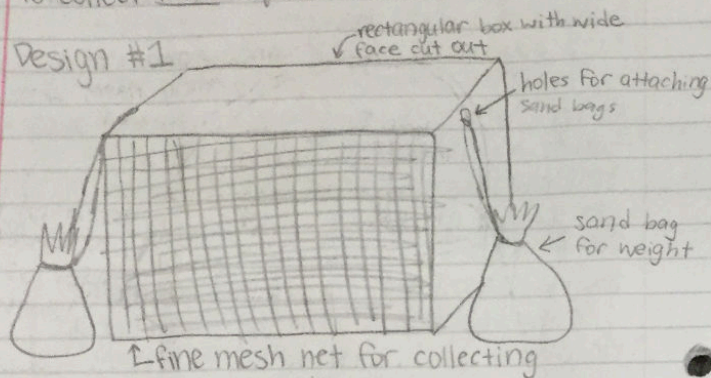 Design #1
rectangular box with wide
face cut out
holes for attaching
sand bags
sand bag
for weight
fine mesh net for collecting